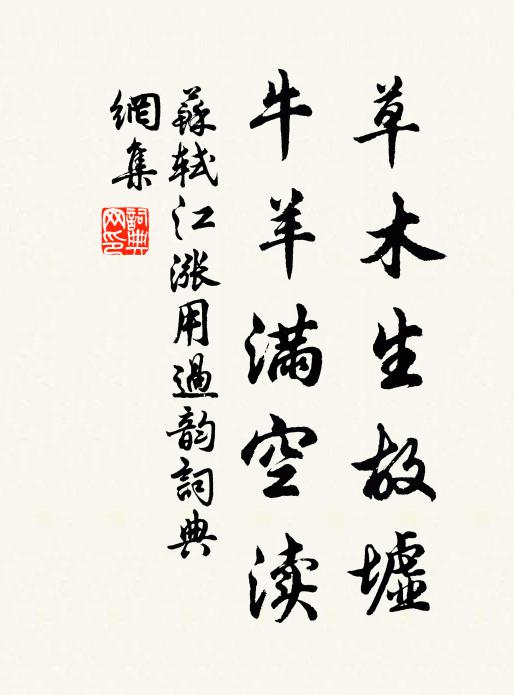 草木生故墟
牛羊满空渎
蘇軾江漲用過韵詞典
網集
詞典
网印